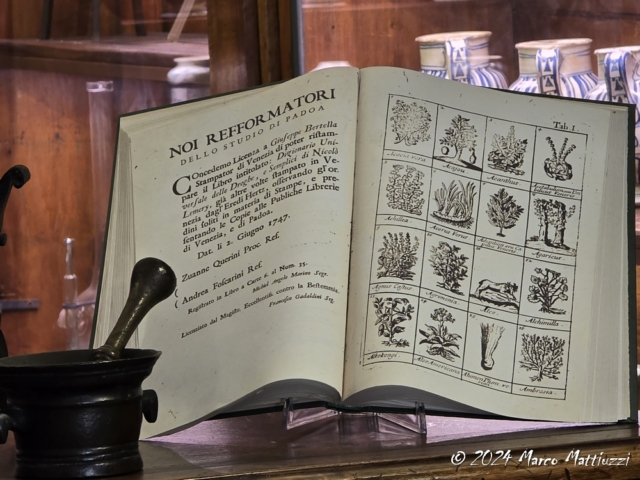 NOI REFFORMATORI
DELLO STUDIO DI PADOA
COncedemo Licenza a Giuseppe Bertella
Stampator di Venezia di poter ristam-
pare il Libro intitolato: Dizionario Uni-
versale delle Droghe, e Semplici di Nicolò
Lemery, già altre volte stampato in Ve-
nezia dagl'Eredi Hertz, osservando gl'or-
dini soliti in materia di Stampe, e pre-
sentando le Copie alle Publiche Librerie
di Venezia, e di Padoa.
Dat. li 2. Giugno 1747.
( Zuanne Querini Proc. Ref.
( Andrea Foscarini Ref.
Registrato in Libro a Carte 6. al Num. 35.
Michiel Angelo Marino Segr.
Licenziato dal Magistr. Eccellentiss. contro la Bestemmia.
Francesco Gadaldini Seg.
Tab I.
Acacia
Acanthus
Achillea
Acorus Verus
Agaricus
Agnus Castus
Agrimonia
Alcer
Alchimilla
Alkekengi
Aloe Americana
Ambrosia
© 2024 Marco Mattiuzzi